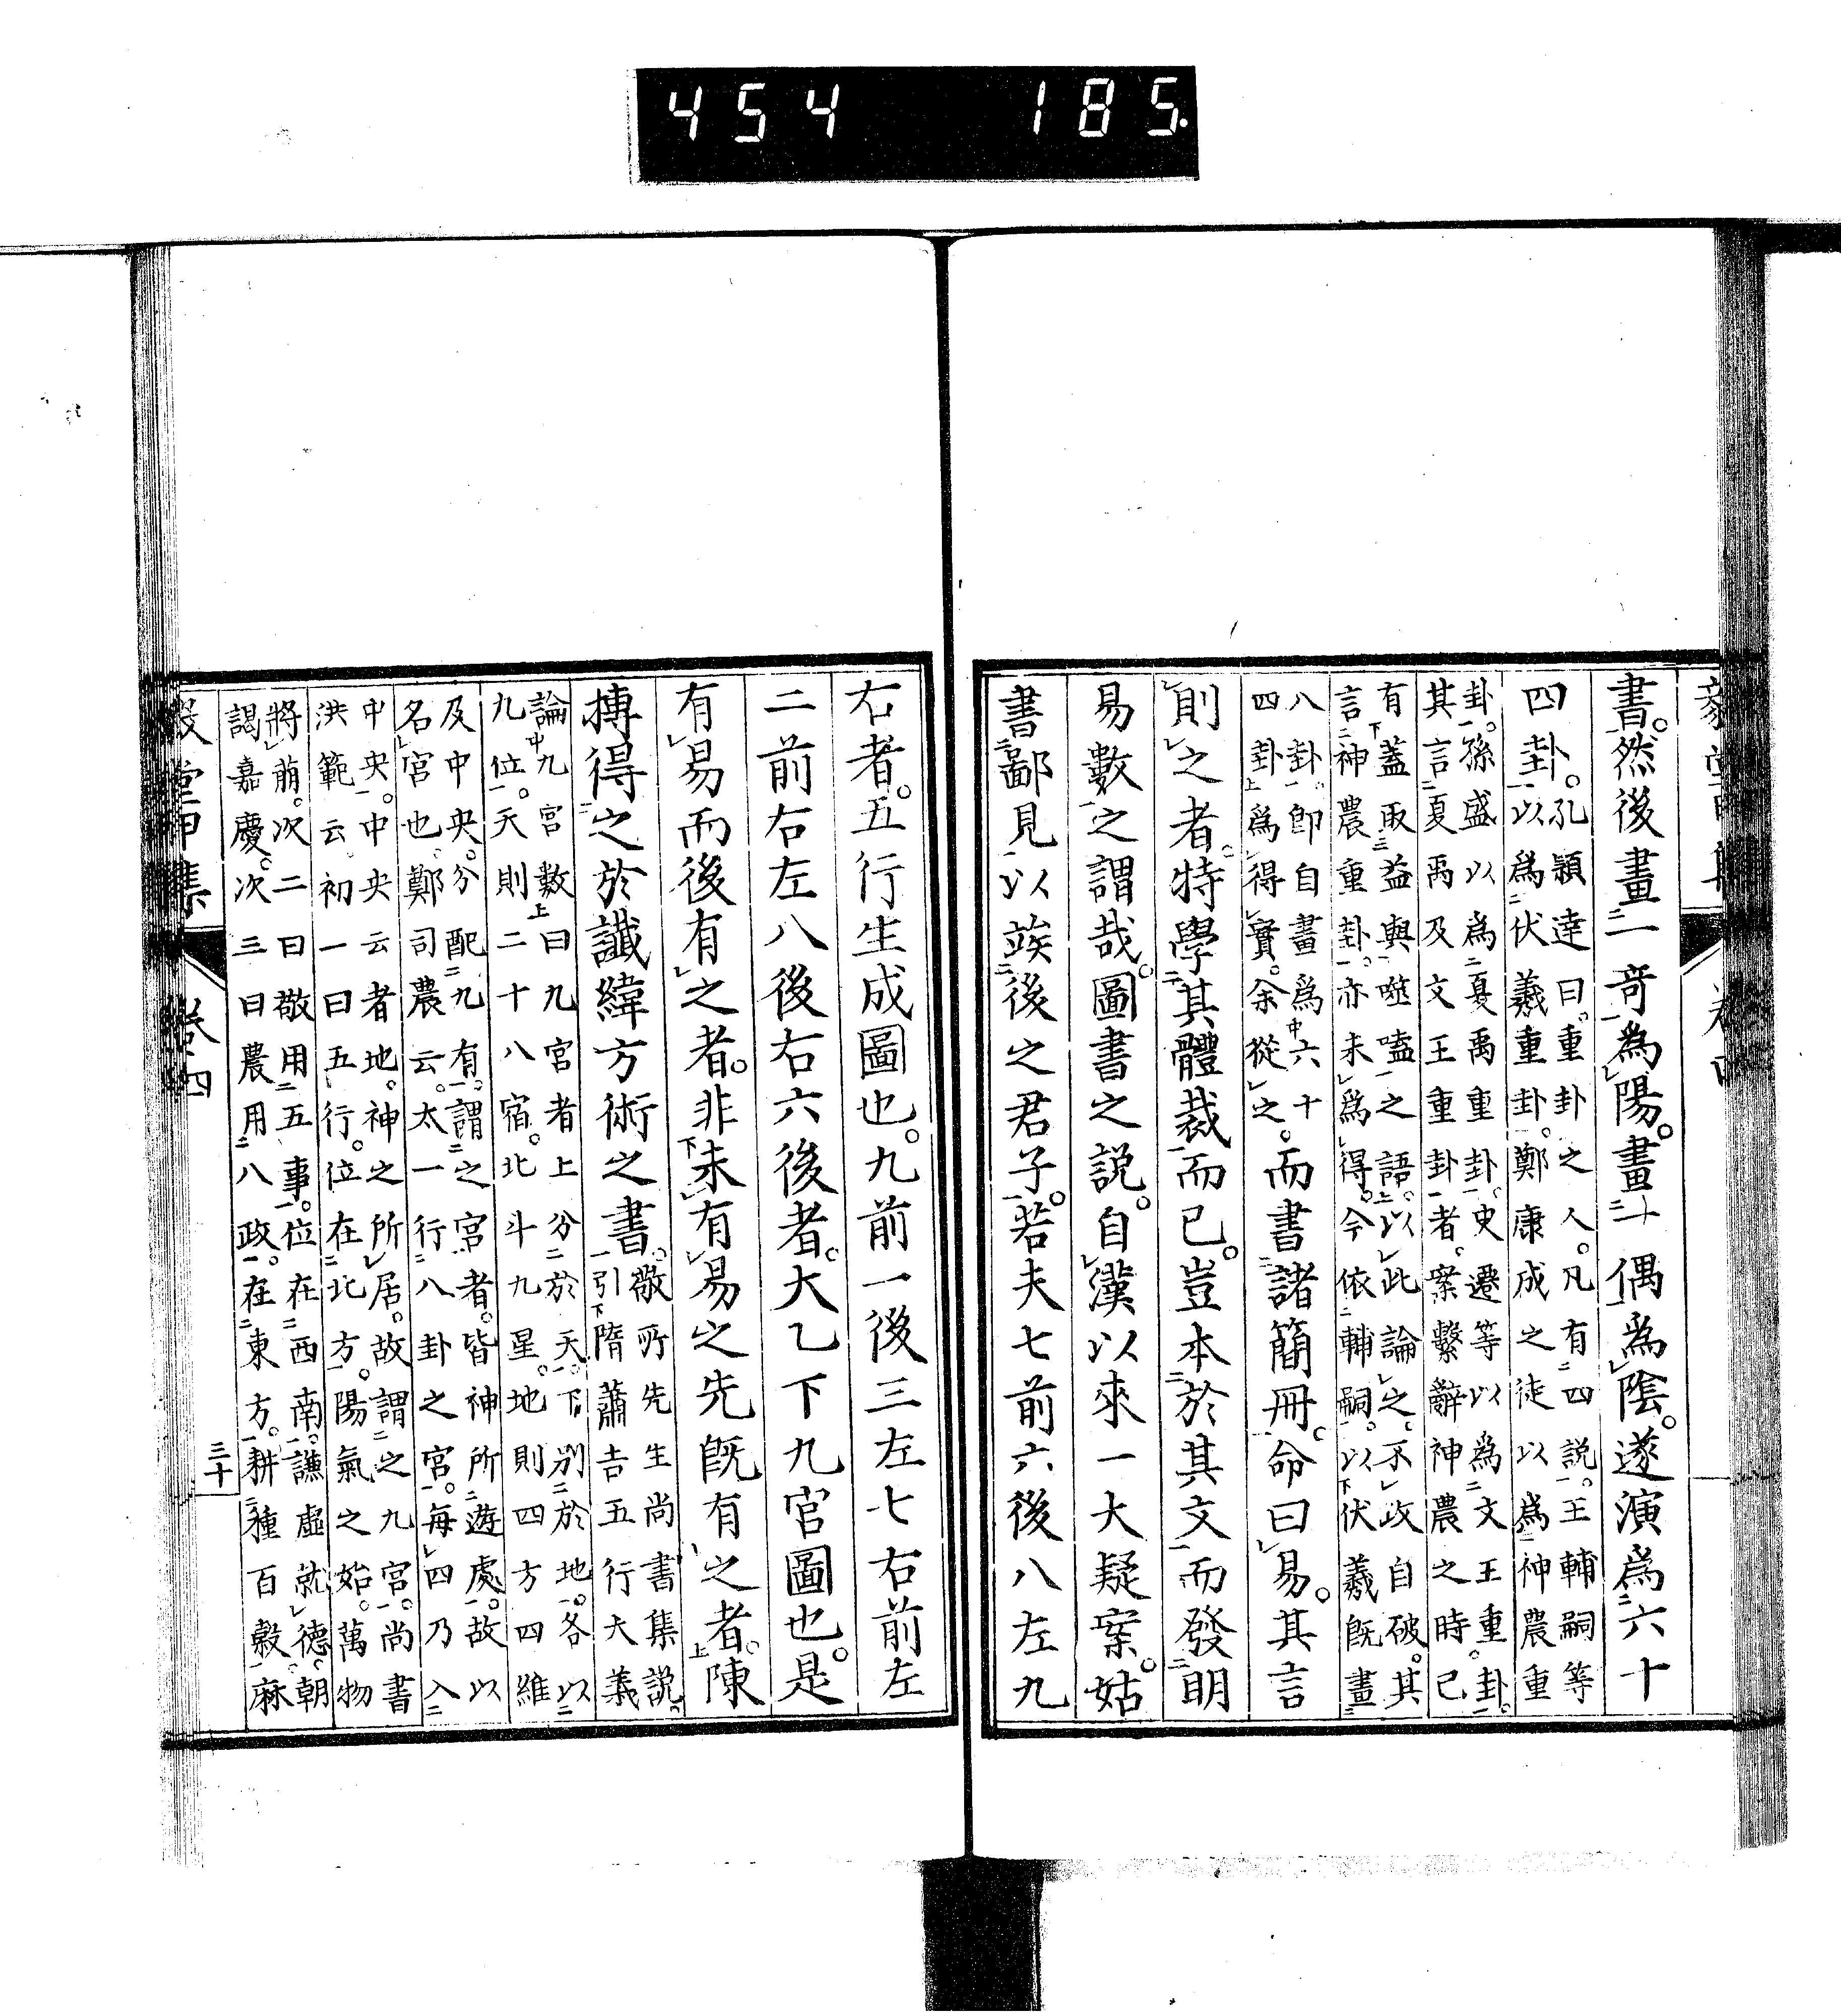 454 185.
書。然後畫一奇爲陽。畫一偶爲陰。遂演爲六十
四卦。
孔穎達曰。重卦之人。凡有四說。王輔嗣等
以爲伏羲重卦。鄭康成之徒以爲神農重
卦。孫盛以爲夏禹重卦。史遷等以爲文王重卦。
其言夏禹及文王重卦者。案繫辭神農之時。已
有蓋取益與噬嗑之語。以此論之。不攻自破。其
言神農重卦。亦未爲得。今依輔嗣。以伏羲既畫
八卦。卽自畫爲六十
四卦爲得實。余從之。
而書諸簡冊。命曰易。其言
則之者。特學其體裁而已。豈本於其文而發明
易數之謂哉。圖書之說。自漢以來一大疑案。姑
書鄙見以竢後之君子。若夫七前六後八左九
右者。五行生成圖也。九前一後三左七右前左
二前右左八後右六後者。大乙下九宮圖也。是
有易而後有之者。非未有易之先既有之者。陳
摶得之於讖緯方術之書。
敬所先生尚書集說。
引隋蕭吉五行大義
論九宮數曰九宮者上分於天。下別於地。各以
九位。天則二十八宿。北斗九星。地則四方四維
及中央。分配九有。謂之宮者。皆神所遊處。故以
名宮也。鄭司農云。太一行八卦之宮。每四乃入
中央。中央云者地。神之所居。故謂之九宮。尚書
洪範云。初一曰五行。位在北方。陽氣之始。萬物
將萠。次二曰敬用五事。位在西南。謙虛就德。朝
謁嘉慶。次三曰農用八政。在東方。耕種百穀。麻
卷四
三十